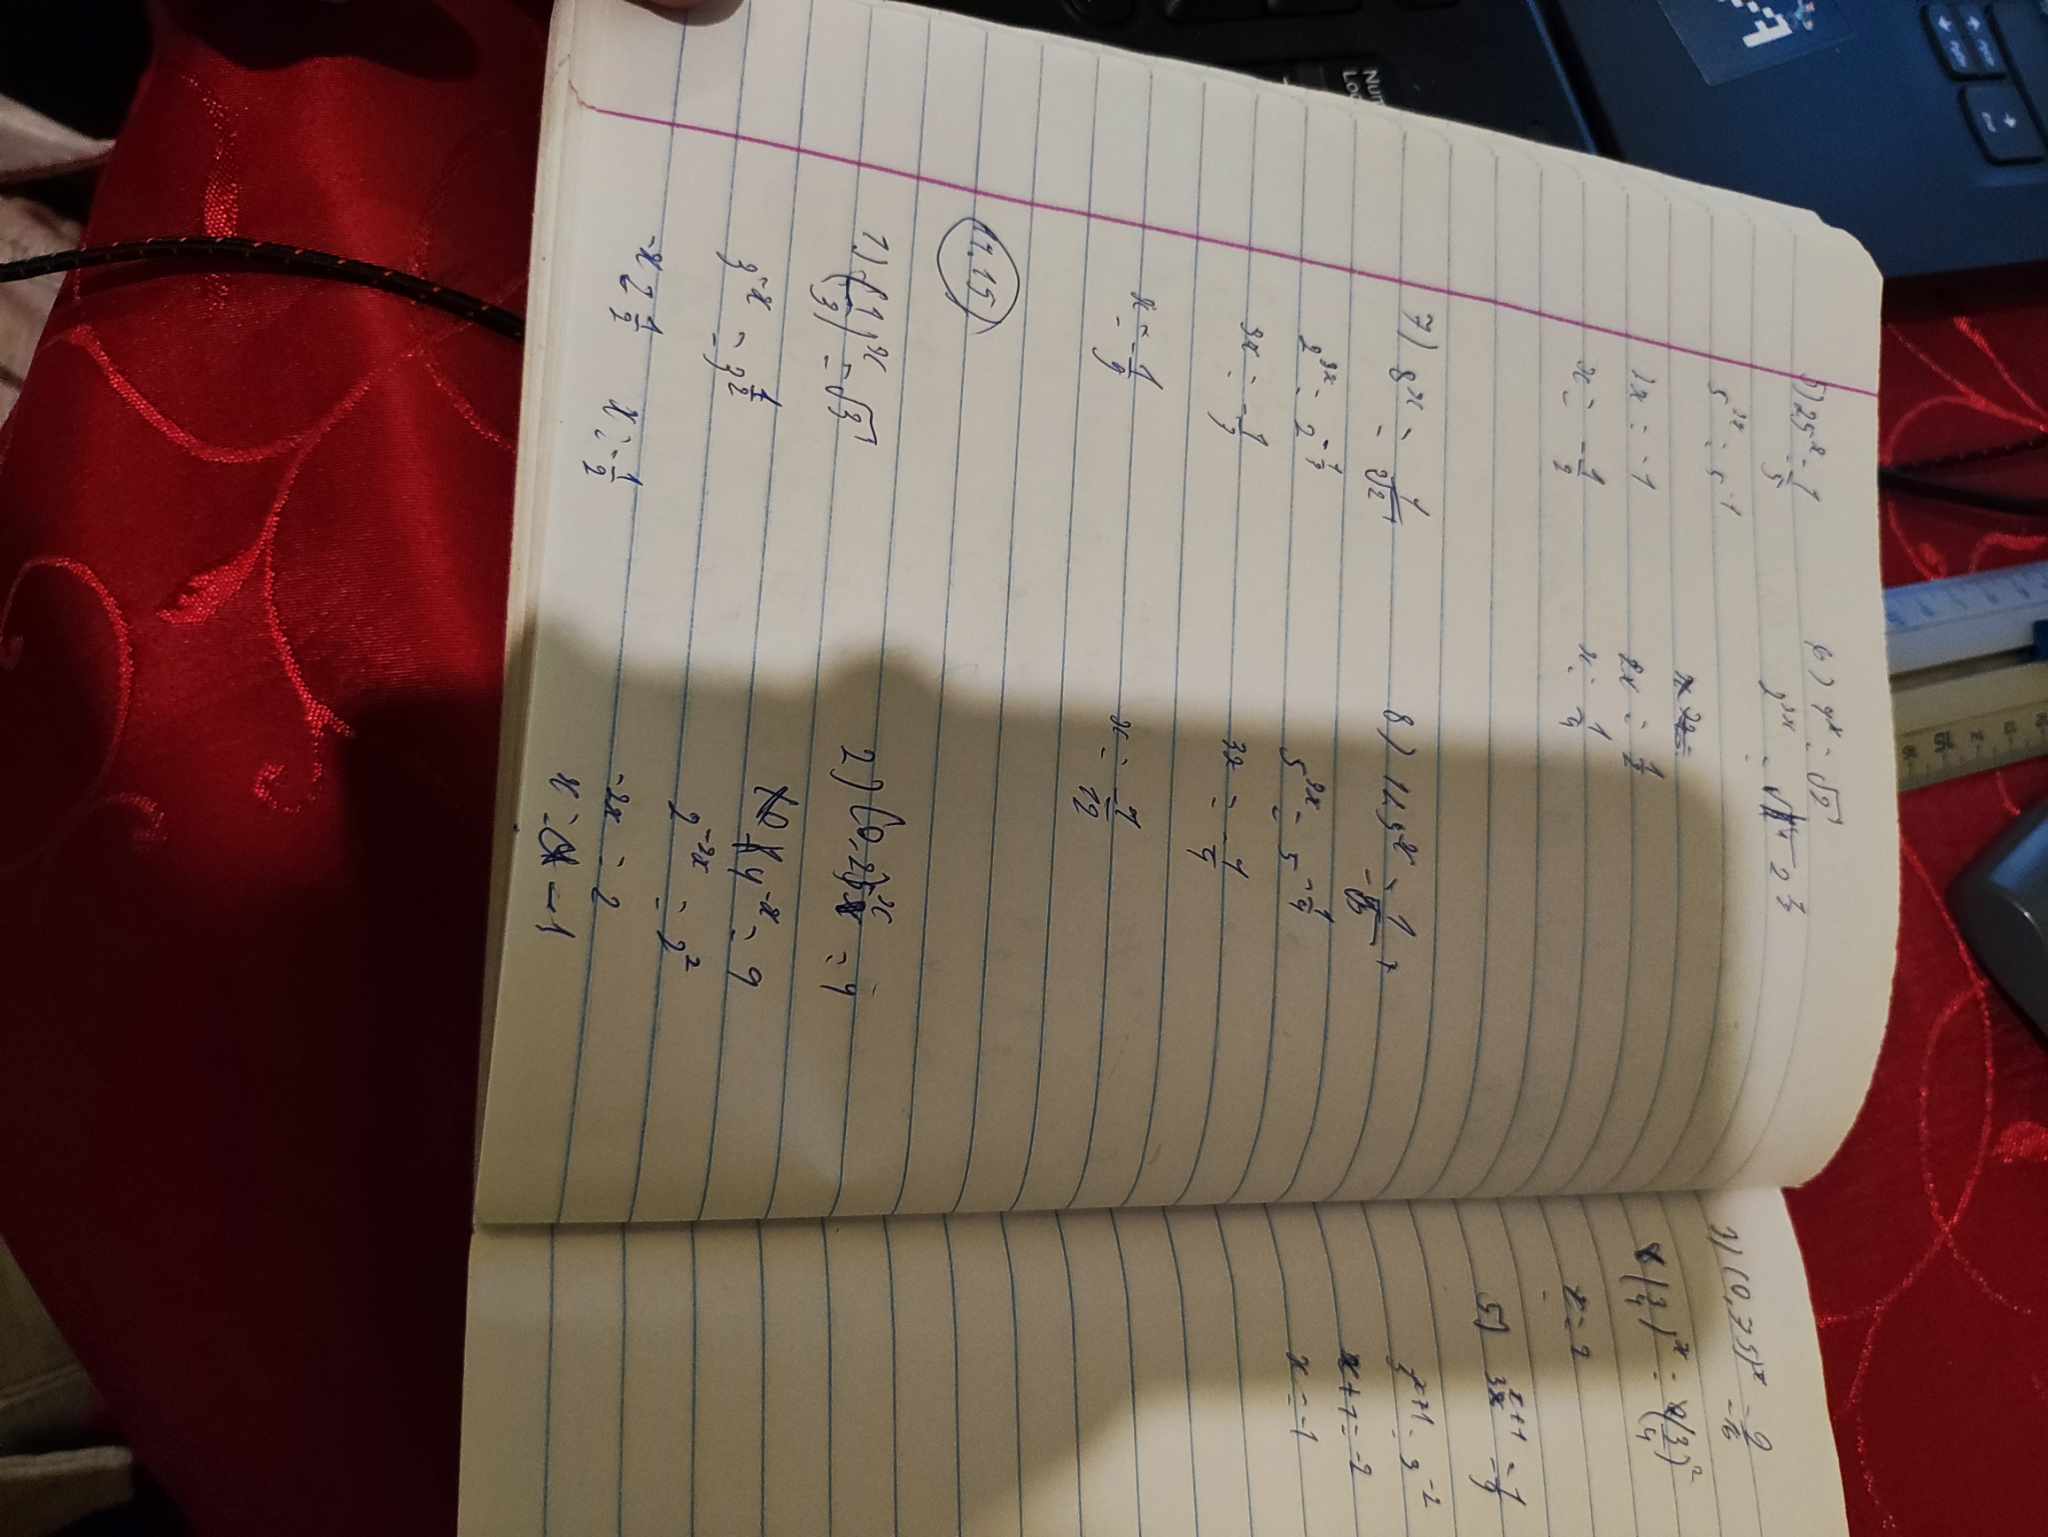 5) 25^x = 1/5
5^2x = 5^-1
2x = -1
x = -1/2
6) 4^x = √2
2^2x =
2x = 1/2
x = 1/4
7) 8^x = 1/
2^3x = 2^-1/3
3x = -1/3
x = -1/9
8) 125^x = 1/
5^3x = 5^-1/4
3x = -1/4
x = -1/12
1) (1/3)^x = √3
3^-x = 3^1/2
x = -1/2
2) (0,25)^x = 4
4^-x = 4
2^-2x = 2^2
-2x = 2
x = -1
(0,75)^x = 9/16
(3/4)^x = (3/4)^2
x = 2
5) 3^x+1 = 1/9
3^x+1 = 3^-2
x+1 = -2
x = -1
Num
Loc